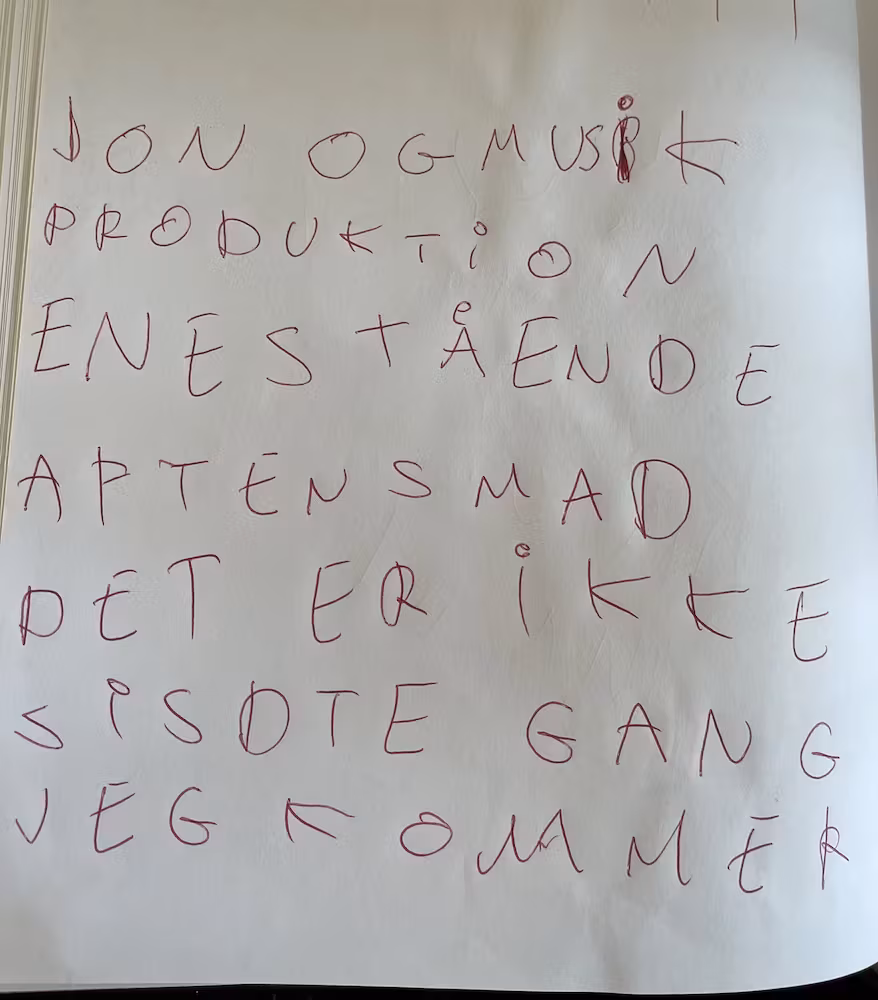 JON OGMUSiK
PRODUKTiON
ENESTÅENDE
APTENSMAD
DET ER iKKE
SiSDTE GANG
JEG KOMMER